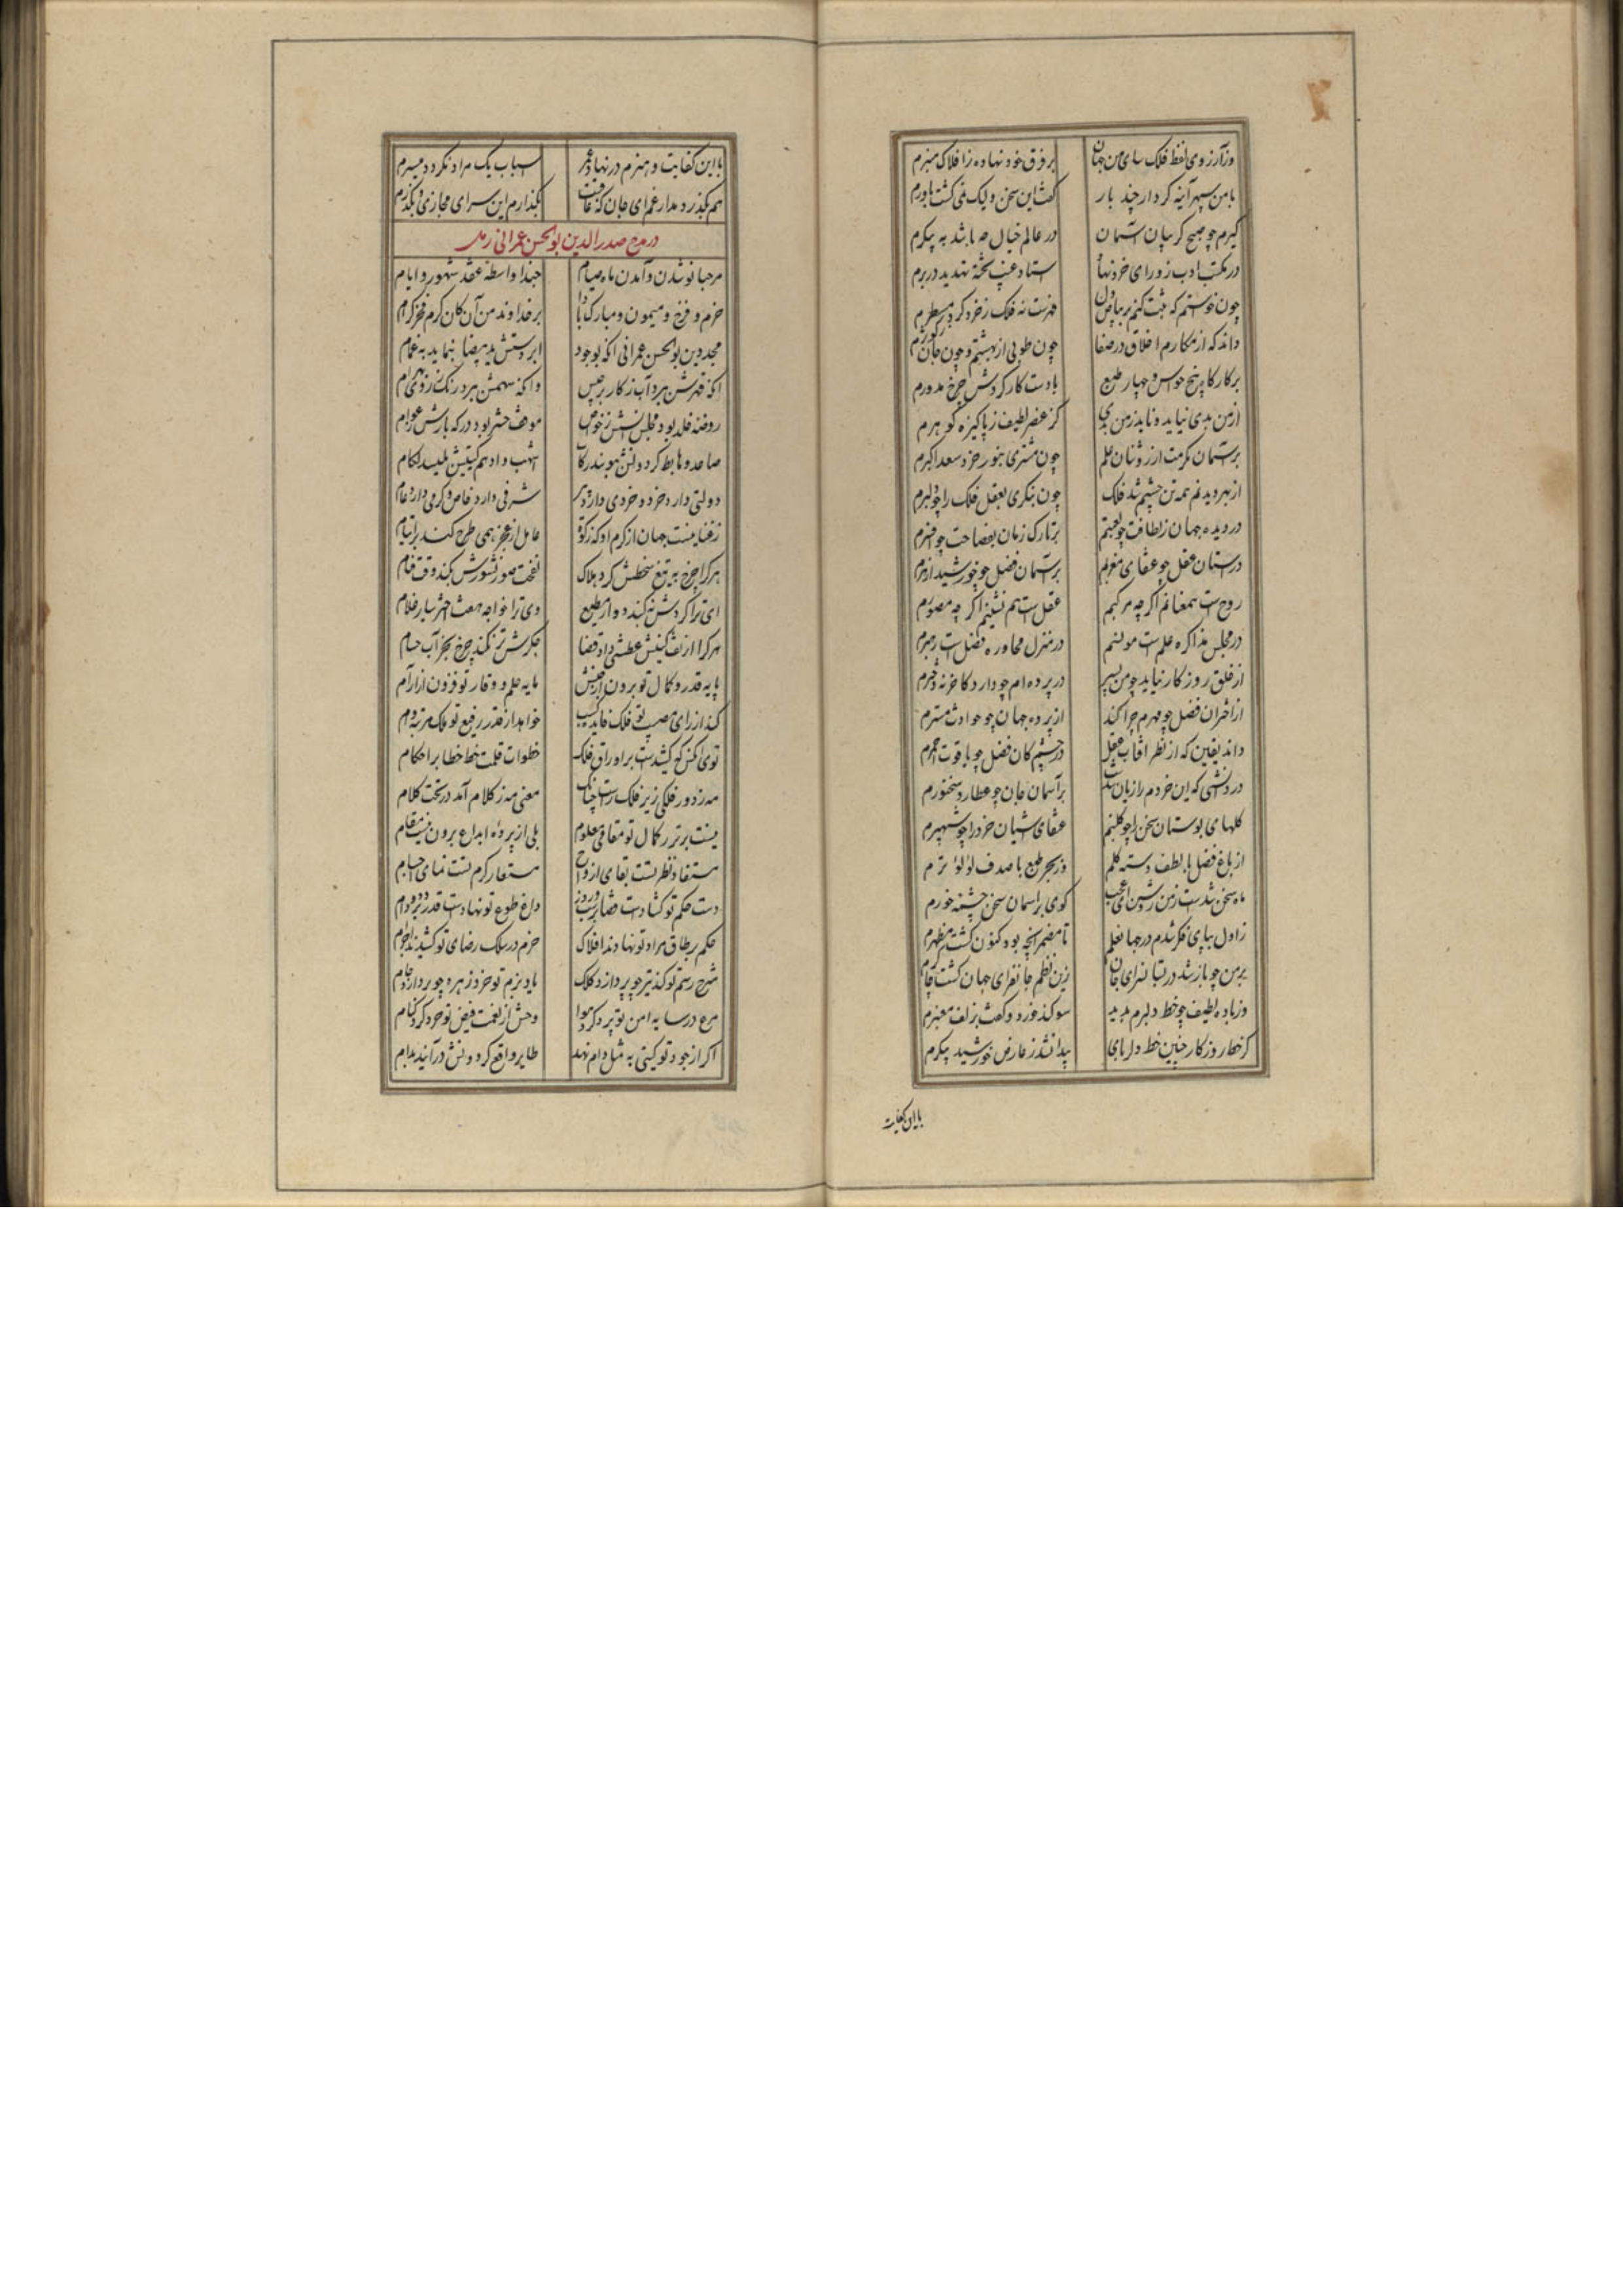 وز آرزوی لفظ فلک سای من جهان بر فرق خود نهاده ز افلاک منبرم
با من سپهر آینه کردار چند بار گفت این سخن ولیک نمی گشت باورم
گیرم چو صبح گریبان آسمان در عالم خیال چه باشد به پیکرم
در مکتب ادب ز ورای خرد نهاد استاد غیب تخته تهدید در برم
چون خواستم که ثبت کنم بر بیاض دل فهرست نه فلک ز خرد کرد مسطرم
داند که از مکارم اخلاق در صفا چون طوبی از بهشتم و چون جان ز کوثرم
بر کارگاه پنج حواس و چهار طبع با دست کار گردش چرخ مدورم
از من بدی نیاید و ناید ز من بدی کز عنصر لطیف ز پاکیزه گوهرم
بر آسمان مکرمت از روشنان علم چون مشتری بنور خرد سعد اکبرم
از بهر دیدنم همه تن چشم شد فلک چون بنگری بعقل فلک را چو دلبرم
در دیده جهان ز لطافت چو لعبتم بر تارک زمان بفصاحت چو افسرم
در آستان عقل چو عنقای مغربم بر آسمان فضل چو خورشید ازهرم
روح است همعنانم اگر چه مرکبم عقل است هم نشینم اگر چه مصورم
در مجلس مذاکره علم است مونسم در منزل محاوره فضل است رهبرم
از خلق روزگار نیاید چو من پسر در پرده ام چو دارد گاه خرد دخترم
از اختران فضل چو مهرم جدا کند از پرده جهان چو حوادث مسترم
داند یقین که از نظر آفتاب عقل در چشم کان فضل چو یاقوت احمرم
در دانشی که این خردم را زبان شدست بر آسمان جان چو عطارد سخنورم
گلهای بوستان سخن را چو گلبنم عنقای آشیان خرد را چو شهپرم
از باغ فضل با لطف دسته گلم وز بحر طبع با صدف لؤلؤ ترم
ماه سخن شدست ز من روشن ای عجب گوی بر آسمان سخن چشمه خورم
ز اول بپای فکر شدم در جهان علم تا مضمر آنچه بود کنون گشت مظهرم
بر من چو باز شد در بستان سرای جان زین نظم جانفزای جهان گشت چاکرم
وز باده لطیف چو خط دلبرم بدید سوگند خورد و گفت بزلف معنبرم
کز خطه روزگار چنین خط دلربای پیدا نشد ز عارض خورشید پیکرم
با این کفایت
با این کفایت و هنرم در نهاد عمر اسباب یک مراد نگردد میسرم
هم بگذرد مدار غم ای جان که عاقبت بگذارم این سرای مجازی و بگذرم
در مدح صدرالدین بوالحسن عمرانی رمل
مرحبا نو شدن و آمدن ماه صیام حبذا واسطه عقد شهور و ایام
خرم و فرخ و میمون و مبارک بادا بر خداوند من آن کان کرم فخر کرام
مجد دین بوالحسن عمرانی آنکه بجود ابر دستش ید بیضا بنماید به غمام
آنکه قهرش ببرد آب ز کار برجیس وانکه سهمش ببرد رنگ ز روی بهرام
روضه خلد بود مجلس انسش ز خواص موقف حشر بود درگه بارش ز عوام
صاعد و هابط گردونش ببوسند رکاب اشهب و ادهم گیتیش بلیسند لگام
دولتی دارد و خرد و خردی دارد پیر شرفی دارد خاص و کرمی دارد عام
ز غنا نیست جهان از کرم او که زکوة عامل از عجز همی طرح کند بر ایتام
هر کرا چرخ به تیغ سخطش کرد هلاک نفخت صور نشورش نکند وقت قیام
ای ترا گردش نه گنبد دوار مطیع وی ترا خواجه هفت اختر سیار غلام
هر کرا از تف کینش عطشی داد قضا جگرش تر نکند چرخ بجز آب حسام
پایه قدر و کمال تو برون از جنبش مایه حلم و وقار تو فزون از آرام
کند از رای مصیب تو فلک فایده کسب خواهد از قدر رفیع تو ملک مرتبه وام
توی آنکس که کشیدست بر اوراق فلک خطوات قلمت خط خطا بر احکام
مه ز دور فلکی زیر فلک راست چنانک معنی مه ز کلام آمد در تحت کلام
نیست برتر ز کمال تو مقامی معلوم بلی از پرده ابداع برون نیست مقام
مستفاد نظر تست بقای ارواح مستعار کرم تست نمای اجسام
دست حکم تو گشادست قضا بر شب و روز داغ طوع تو نهادست قدر بر دد و دام
حکم بر طاق مراد تو نهادند افلاک خرم در سلک رضای تو کشیدند اجرام
شرح رسم تو کند تیر چو پردازد کلک یاد بزم تو خورد زهره چو بردارد جام
مرغ در سایه امن تو پرد گرد هوا وحش از نعمت فیض تو چرد گرد کنام
اگر از جود تو گیتی به مثل دام نهد طایر واقع گردونش درآیند بدام